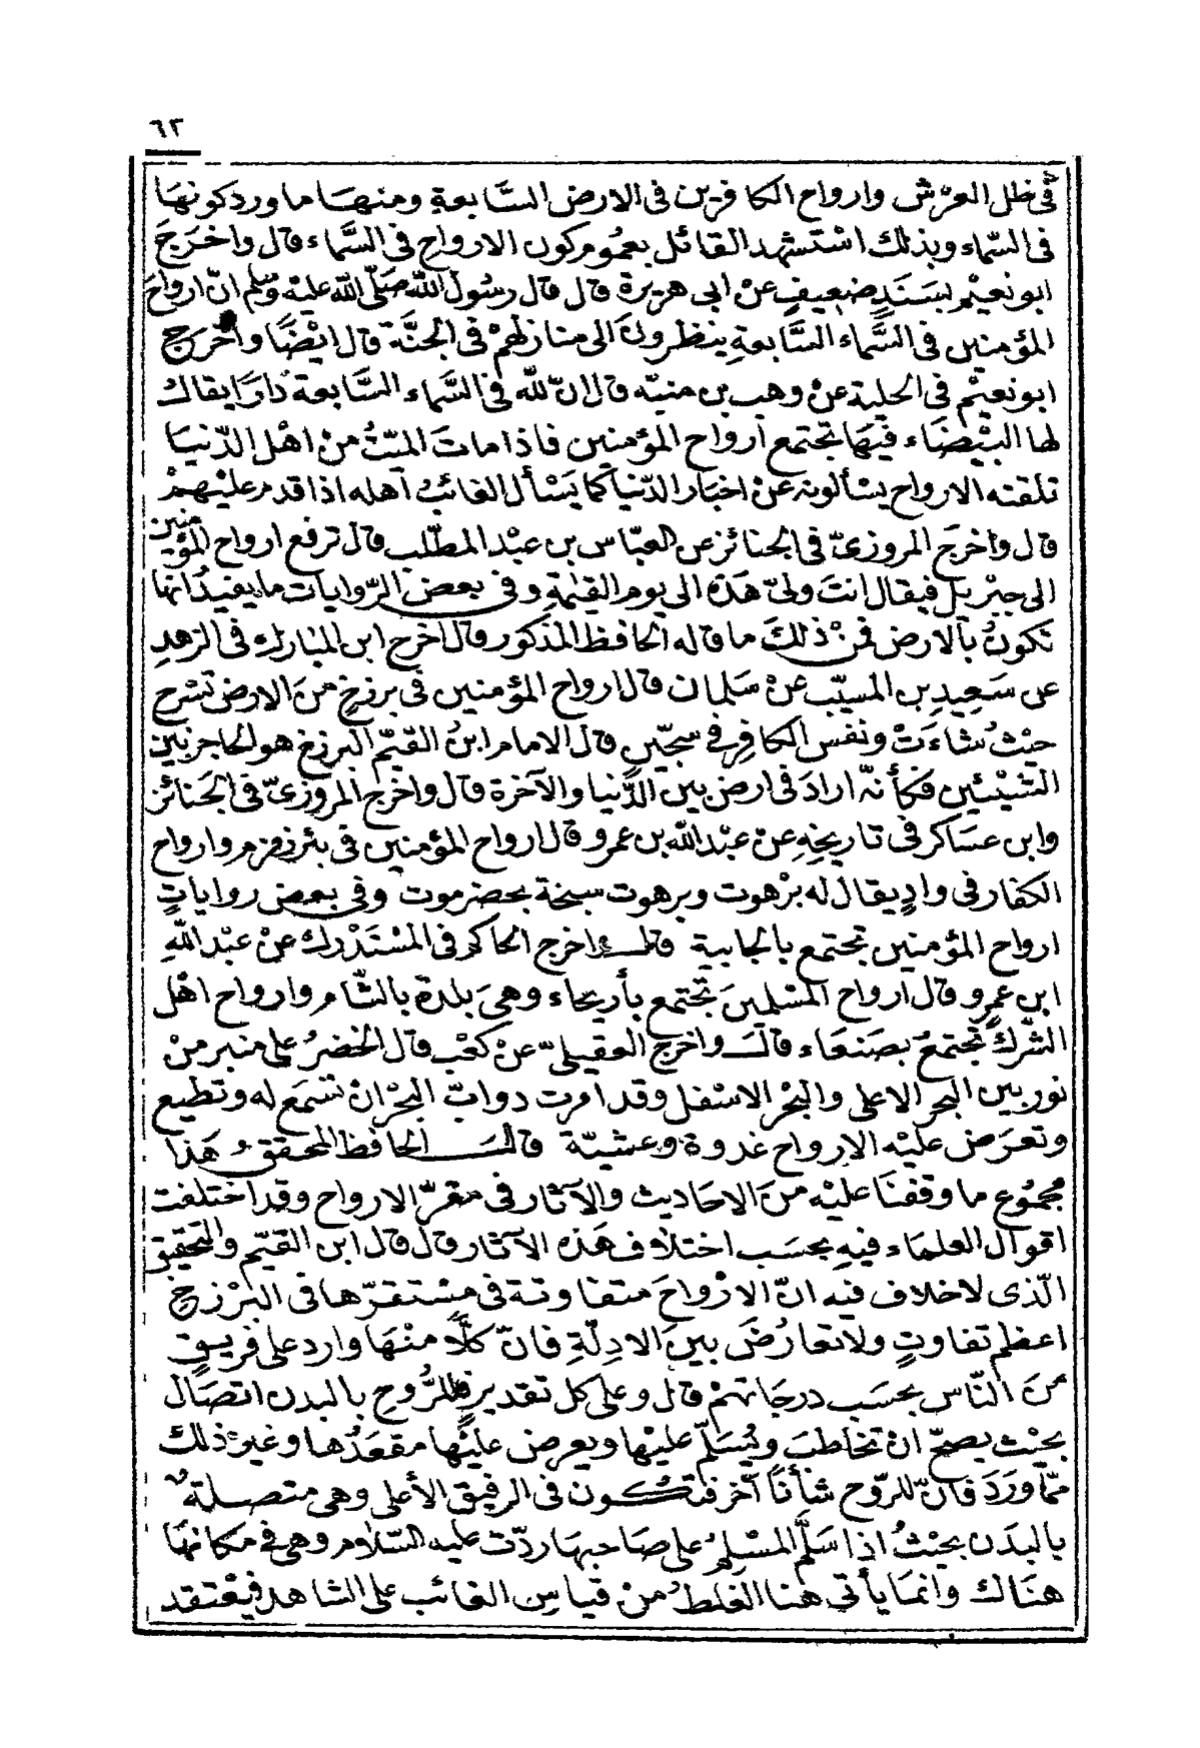 ٦٣
في ظل العرش وارواح الكافرين فى الارض السَّابعةِ ومنهَا ما ورد كونهَا
فى السّماء وبذلك اسْتشهد القائل بعمُوم كون الارواح فى السَّماء قال واخرَجَ
ابو نعيْم بسَنَدٍ ضعيفٍ عنْ ابى هريرة قال قال رسُول اللّه صَلّى اللّه عليْه وسَلم انّ ارواح
المؤمنين فى السَّماء السَّابعةِ ينظرونَ الى منازلهمْ فى الجنَّة قال ايْضًا واخْرَج
ابو نعيْم فى الحلية عنْ وهب بن منبّه قال انّ للّه فى السَّماء السَّابعة دَارًا يقال
لها البيْضَاء فيهَا تجتمع ارواح المؤمنين فاذا ماتَ الميّتُ منْ اهْل الدّنيَا
تلقته الارواح يسْألونه عنْ اخبَار الدّنيا كما يَسْأل الغائبُ اهله اذا قدم عليْهمْ
قال واخرجَ المروزىّ فى الجنائز عن العبّاس بن عبْد المطّلب قال ترفع ارواح المؤمنين
الى جبْريل فيقال انتَ ولىّ هَذه الى يوم القيٰمةِ وفى بعض الرّوايات ما يفيدُ انهَا
تكونُ بالارض فمنْ ذلكَ ما قاله الحافظ المذكور قال اخرج ابن المبارك فى الزهدِ
عن سَعِيدِ بن المسيّب عنْ سَلمان قال ارواح المؤمنين فى برزخٍ منَ الارض تسْرح
حيْثُ شاءَتْ ونفس الكافرِ فى سجّين قال الامام ابنُ القيّم البرزخ هو الحاجز بين
الشيْئين فكأنّه ارادَ فى ارض بين الدُّنيا والآخرة قال واخرج المروزىّ فى الجَنائز
وابن عسَاكر فى تاريخِهِ عنْ عبْد اللّه بن عمرو قال ارواح المؤمنين فى بئر زمزم وارواح
الكفار فى وادٍ يقال له برْهوت وبرهوت سبخة بحضرموت وفى بعض رواياتٍ
ارواح المؤمنين تجتمع بالجابية قال واخرج الحاكم فى المسْتدْرك عنْ عبْد اللّهِ
ابن عمرو قال ارواح المسْلمينَ تجتمع بأريحاء وهىَ بلدة بالشّام وارواح اهْل
الشّركِ تجتمعُ بصَنعَاء قالـ واخرج العقيلىّ عنْ كعْب قال الخضرُ على منبر منْ
نور بين البحر الاعلى والبحْر الاسْفل وقد امرت دوابّ البحْر انْ تسْمَع له وتطيع
وتعرَض عليْه الارواح غدوة وعشيّة قالـ الحافظ المحقق هَذا
مجمُوع ما وقفنَا عليْه منَ الاحَاديث والآثار فى مقرّ الارواح وقد اختلفت
اقوال العلمَاء فيهِ بحسَب اختلاف هَذه الآثار قال قال ابن القيّم والتحقيق
الّذى لا خلاف فيه انّ الارْواحَ متفاوتة فى مسْتقرّها فى البرْزخ
اعظم تفاوتٍ ولا تعارُضَ بينَ الادِلّةِ فانّ كلًّا منْهَا وارد على فريقٍ
منَ النّاس بحسَب درجَاتهمْ قال وعلى كل تقدير فللرُّوح بالبدن اتصَال
بحيْث يصحّ انْ تخاطبَ ويُسَلّم عليْها ويعرض عليْها مقعَدُها وغيرُ ذلك
ممّا ورَدَ فانّ للرّوح شأنًا آخر فتكون فى الرفيق الأعلى وهى متصلة
بالبدَن بحيْثُ اذا سَلَّم المسْلِمُ على صَاحبهَا ردّت عليه السّلام وهى فى مكانهَا
هنَاك وانمَا يأتى هنا الغلطُ منْ قياسِ الغائب على الشاهد فيعْتقد